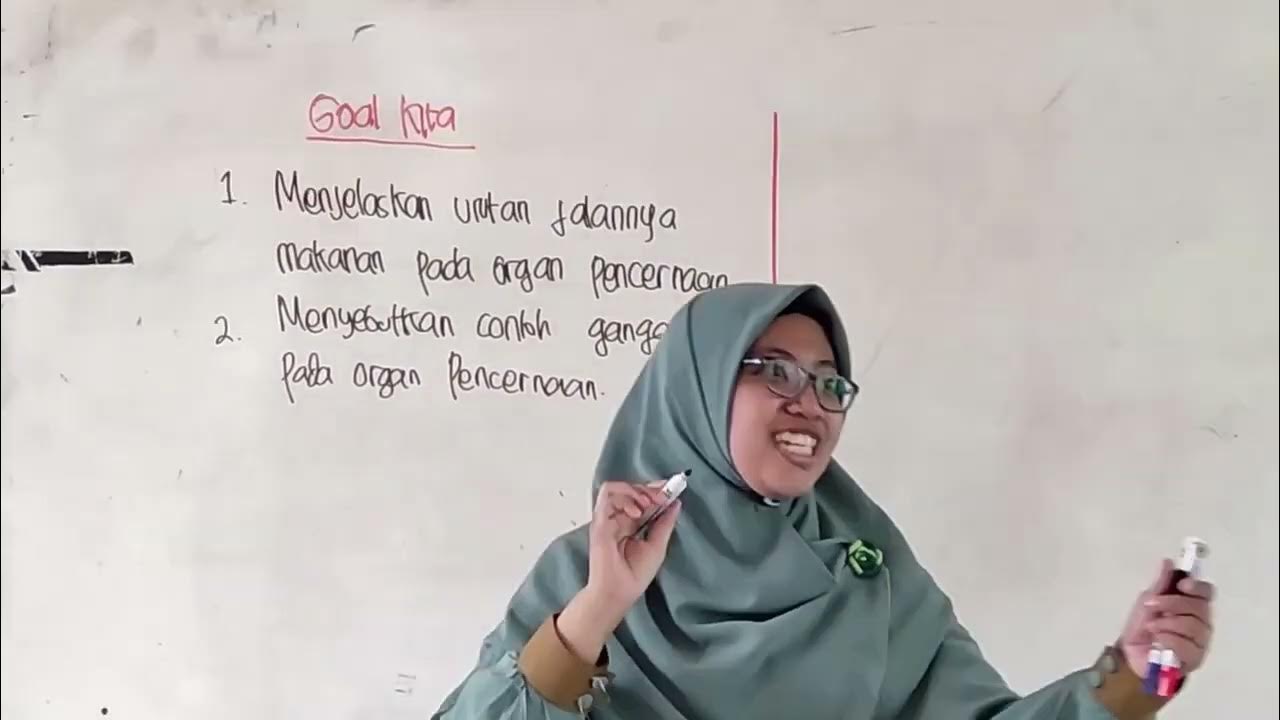 Goal Kita
1. Menjelaskan urutan jalannya
makanan pada organ pencernaan
2. Menyebutkan contoh
pada organ Pencernaan.